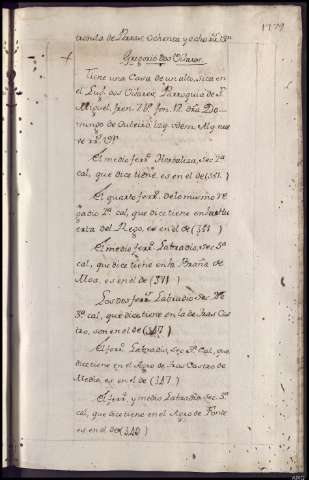 1779
Gregorio dos Viñares
Tiene una Casa de un alto, sita en
el Lug.r dos Viñares, Parroquia de S.n
Miguel, fren. 7 8.s fon. 12. dra Do-
mingo de Outeiro, izq. idem.
El medio ferr.o Hortaliza, sec. 2.a
cal, que dice tiene, es en el de (351.)
El quarto ferr.o de lo mismo re
gadio 2.a cal, que dice tiene en la Hu
erta del Rego, es en el de (351)
El medio ferr.o Labradio, sec. 3.a
cal, que dice tiene en la Braña de
Moa, es en el de (371)
Los dos ferr.s Labradio sec.
3.a cal, que dice tiene en la de tras Cas
tro, son en el de (347)
El ferr.o Labradio, sec. 3.a Cal, que
dice tiene en el Agro de tras Castro de
Medio, es en el de (347)
El ferr.o y medio Labradio sec. 3.a
cal, que dice tiene en el Agro de Fonte
es en el de (340)